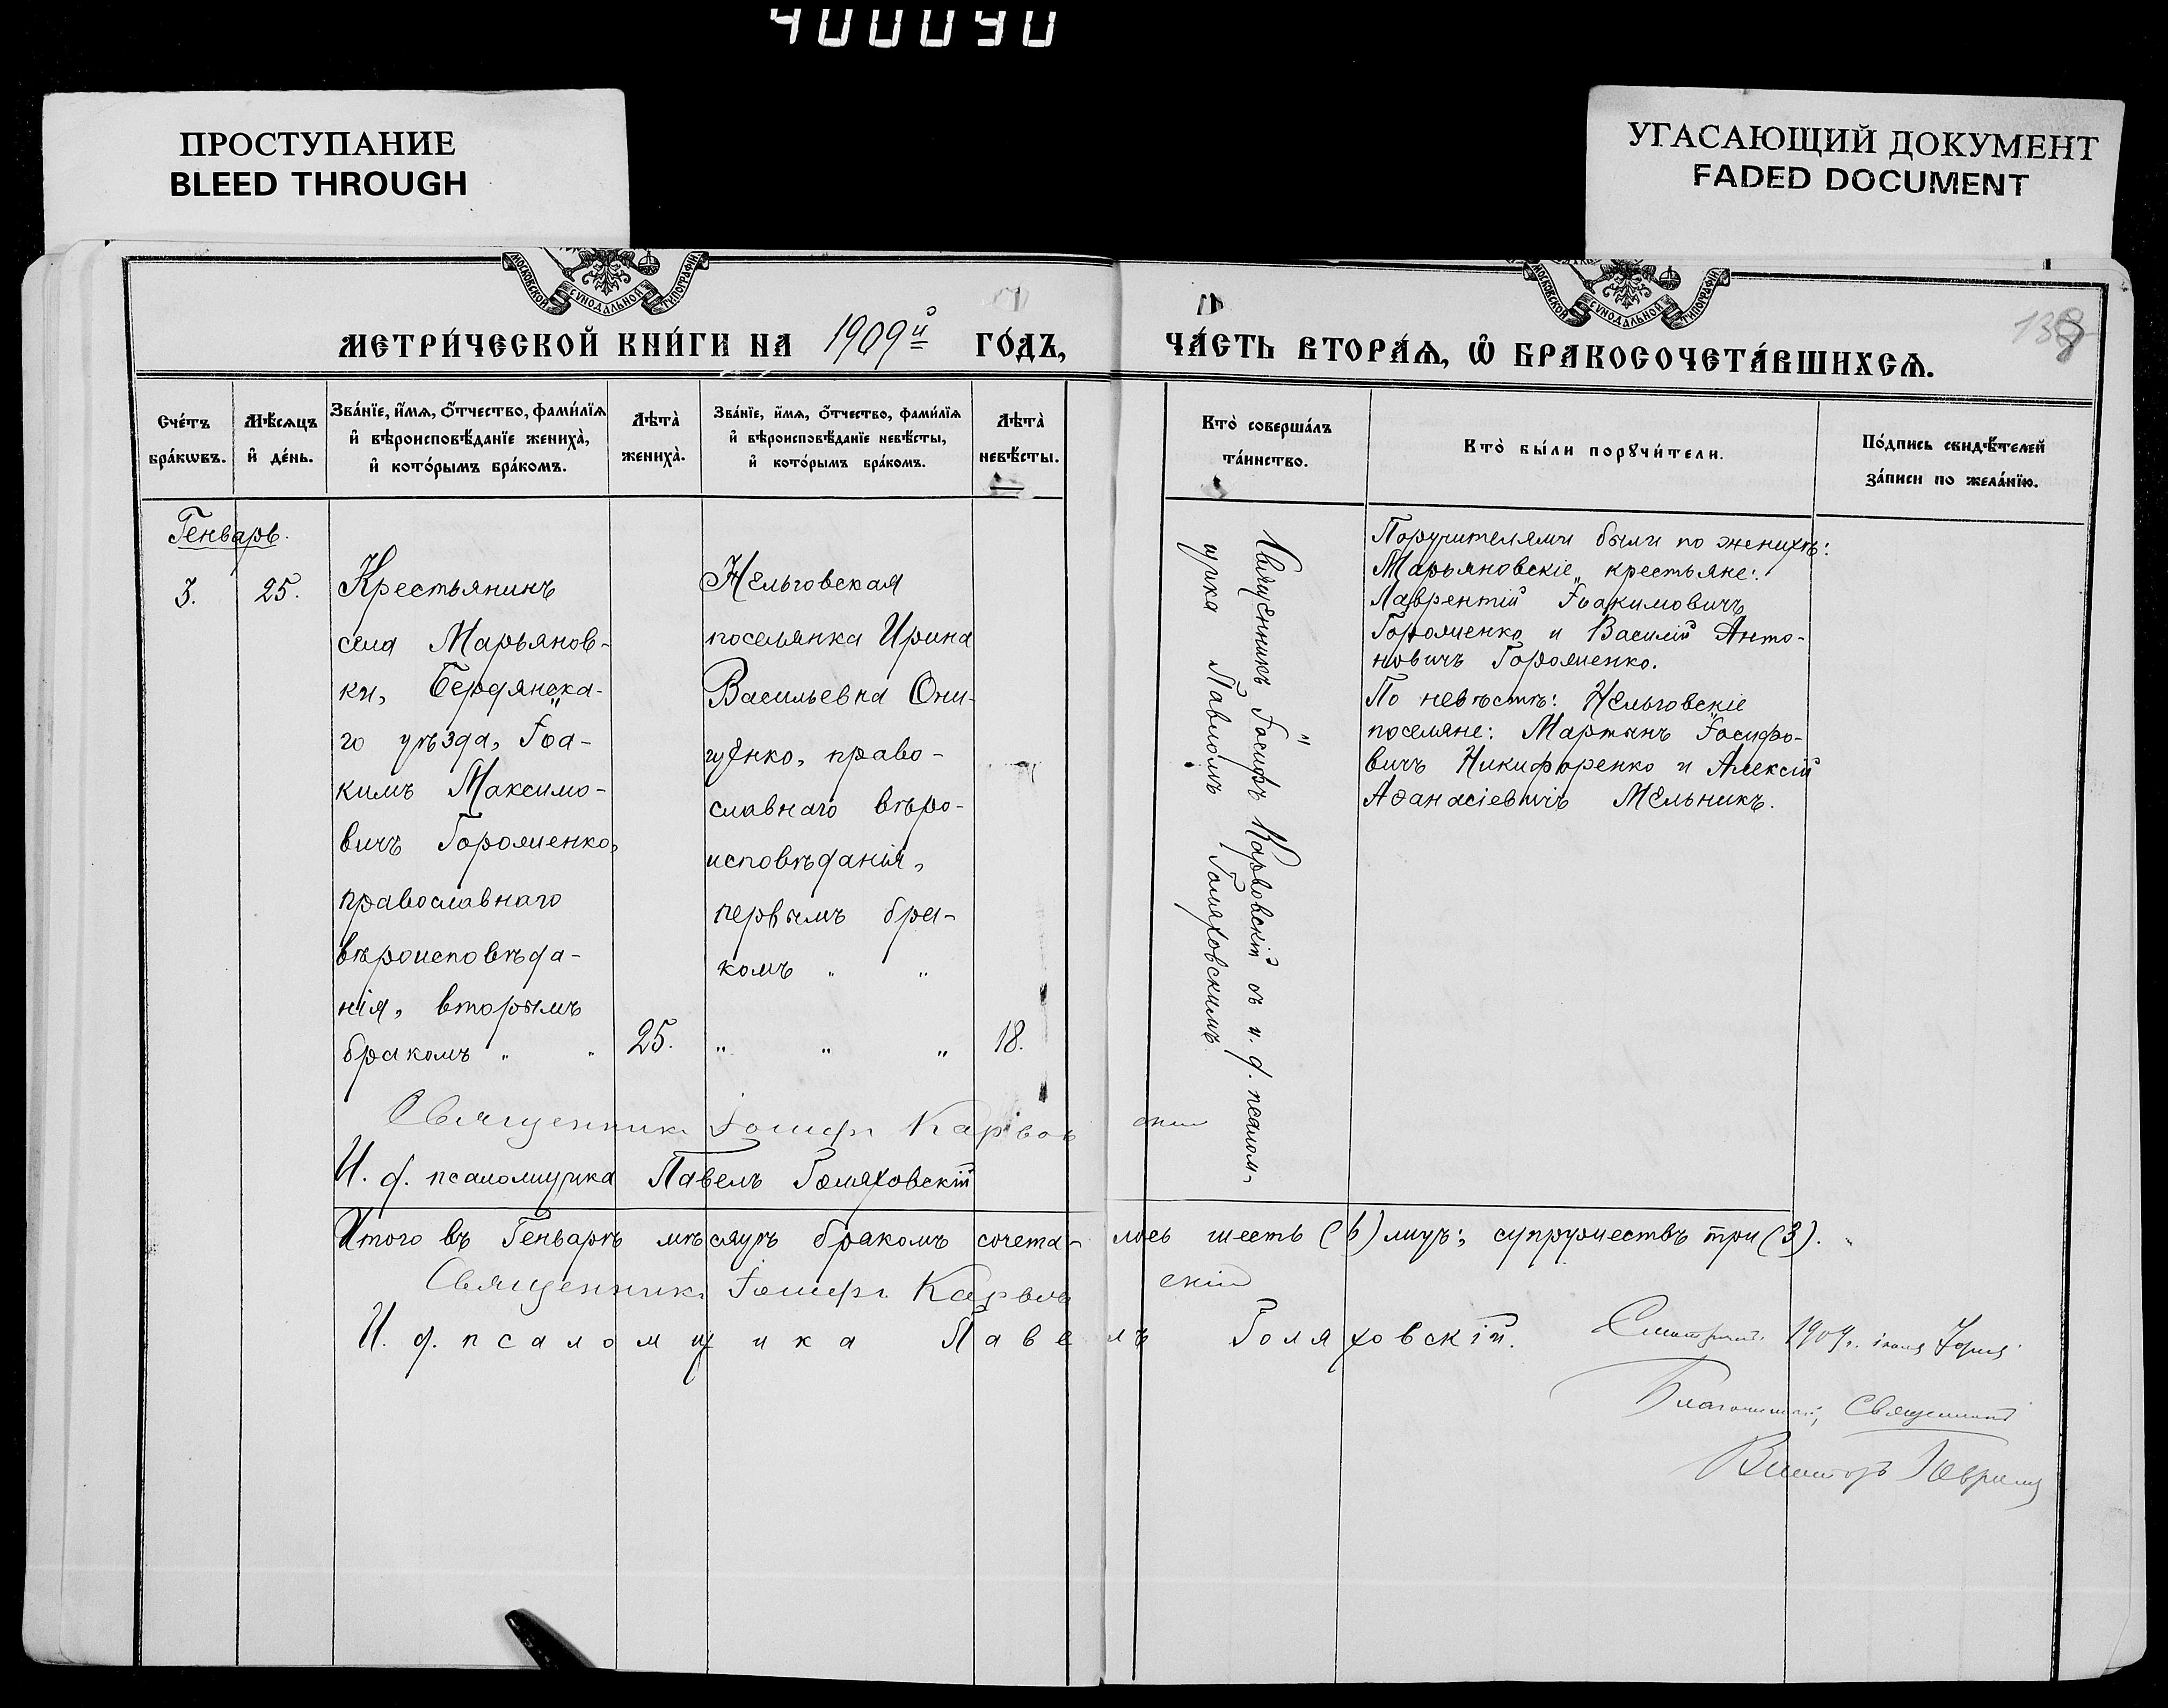 400090
ПРОСТУПАНИЕ
BLEED THROUGH
УГАСАЮЩИЙ ДОКУМЕНТ
FADED DOCUMENT
МОСКОВСКОЙ СѴНОДАЛЬНОЙ ТИПОГРАФІИ
МЕТРИ́ЧЕСКОЙ КНИ́ГИ НА 1909й ГО́ДЪ,
МОСКОВСКОЙ СѴНОДАЛЬНОЙ ТИПОГРАФІИ
ЧА́СТЬ ВТОРА́Ѧ, Ѡ҆ БРАКОСОЧЕТА́ВШИХСѦ.
138
Сче́тъ
бра́кѡвъ.
Мѣ́сѧцъ
и҆ де́нь.
Зва́нїе, и҆́мѧ, ѻ҆́тчество, фами́лїѧ
и҆ вѣроисповѣ́данїе жениха̀,
и҆ кото́рымъ бра́комъ.
Лѣта̀
жениха̀.
Зва́нїе, и҆́мѧ, ѻ҆́тчество, фами́лїѧ
и҆ вѣроисповѣ́данїе невѣ́сты,
и҆ кото́рымъ бра́комъ.
Лѣта̀
невѣ́сты.
Кто̀ соверша́лъ
та́инство.
Кто̀ бы́ли порꙋчи́тели.
По́дпись свидѣ́телей
за́писи по жела́нїю.
Генварь.
3.
25.
Крестьянинъ
села Марьянов-
ки, Бердянска-
го уѣзда, Іоа-
кимъ Максимо-
вичъ Гороменко,
православнаго
вѣроисповѣда-
нія, вторымъ
бракомъ „ „
25.
Нельговская
поселянка Ирина
Васильевна Они-
щенко, право-
славнаго вѣро-
исповѣданія,
первымъ бра-
комъ „ „
„ „ „
18.
Священникъ Іосифъ Карвовскій съ и. д. псалом-
щика Павломъ Голяховскимъ
Поручителями были по женихѣ:
Марьяновскіе крестьяне:
Лаврентій Іоакимовичъ
Гороменко и Василій Анто-
новичъ Гороменко.
По невѣстѣ: Нельговскіе
поселяне: Мартинъ Іосифо-
вичъ Никифоренко и Алексій
Аѳанасіевичъ Мельникъ.
Священникъ Іосифъ Карвовскій
И. д. псаломщика Павелъ Голяховскій
Итого въ Генварѣ мѣсяцѣ бракомъ сочета- лось шесть (6) лицъ; супружествъ три (3).
Священникъ Іосифъ Карвовскій
И. д. псаломщика Павелъ Голяховскій.
1909 г.
Благочинный, Священникъ
Викторъ